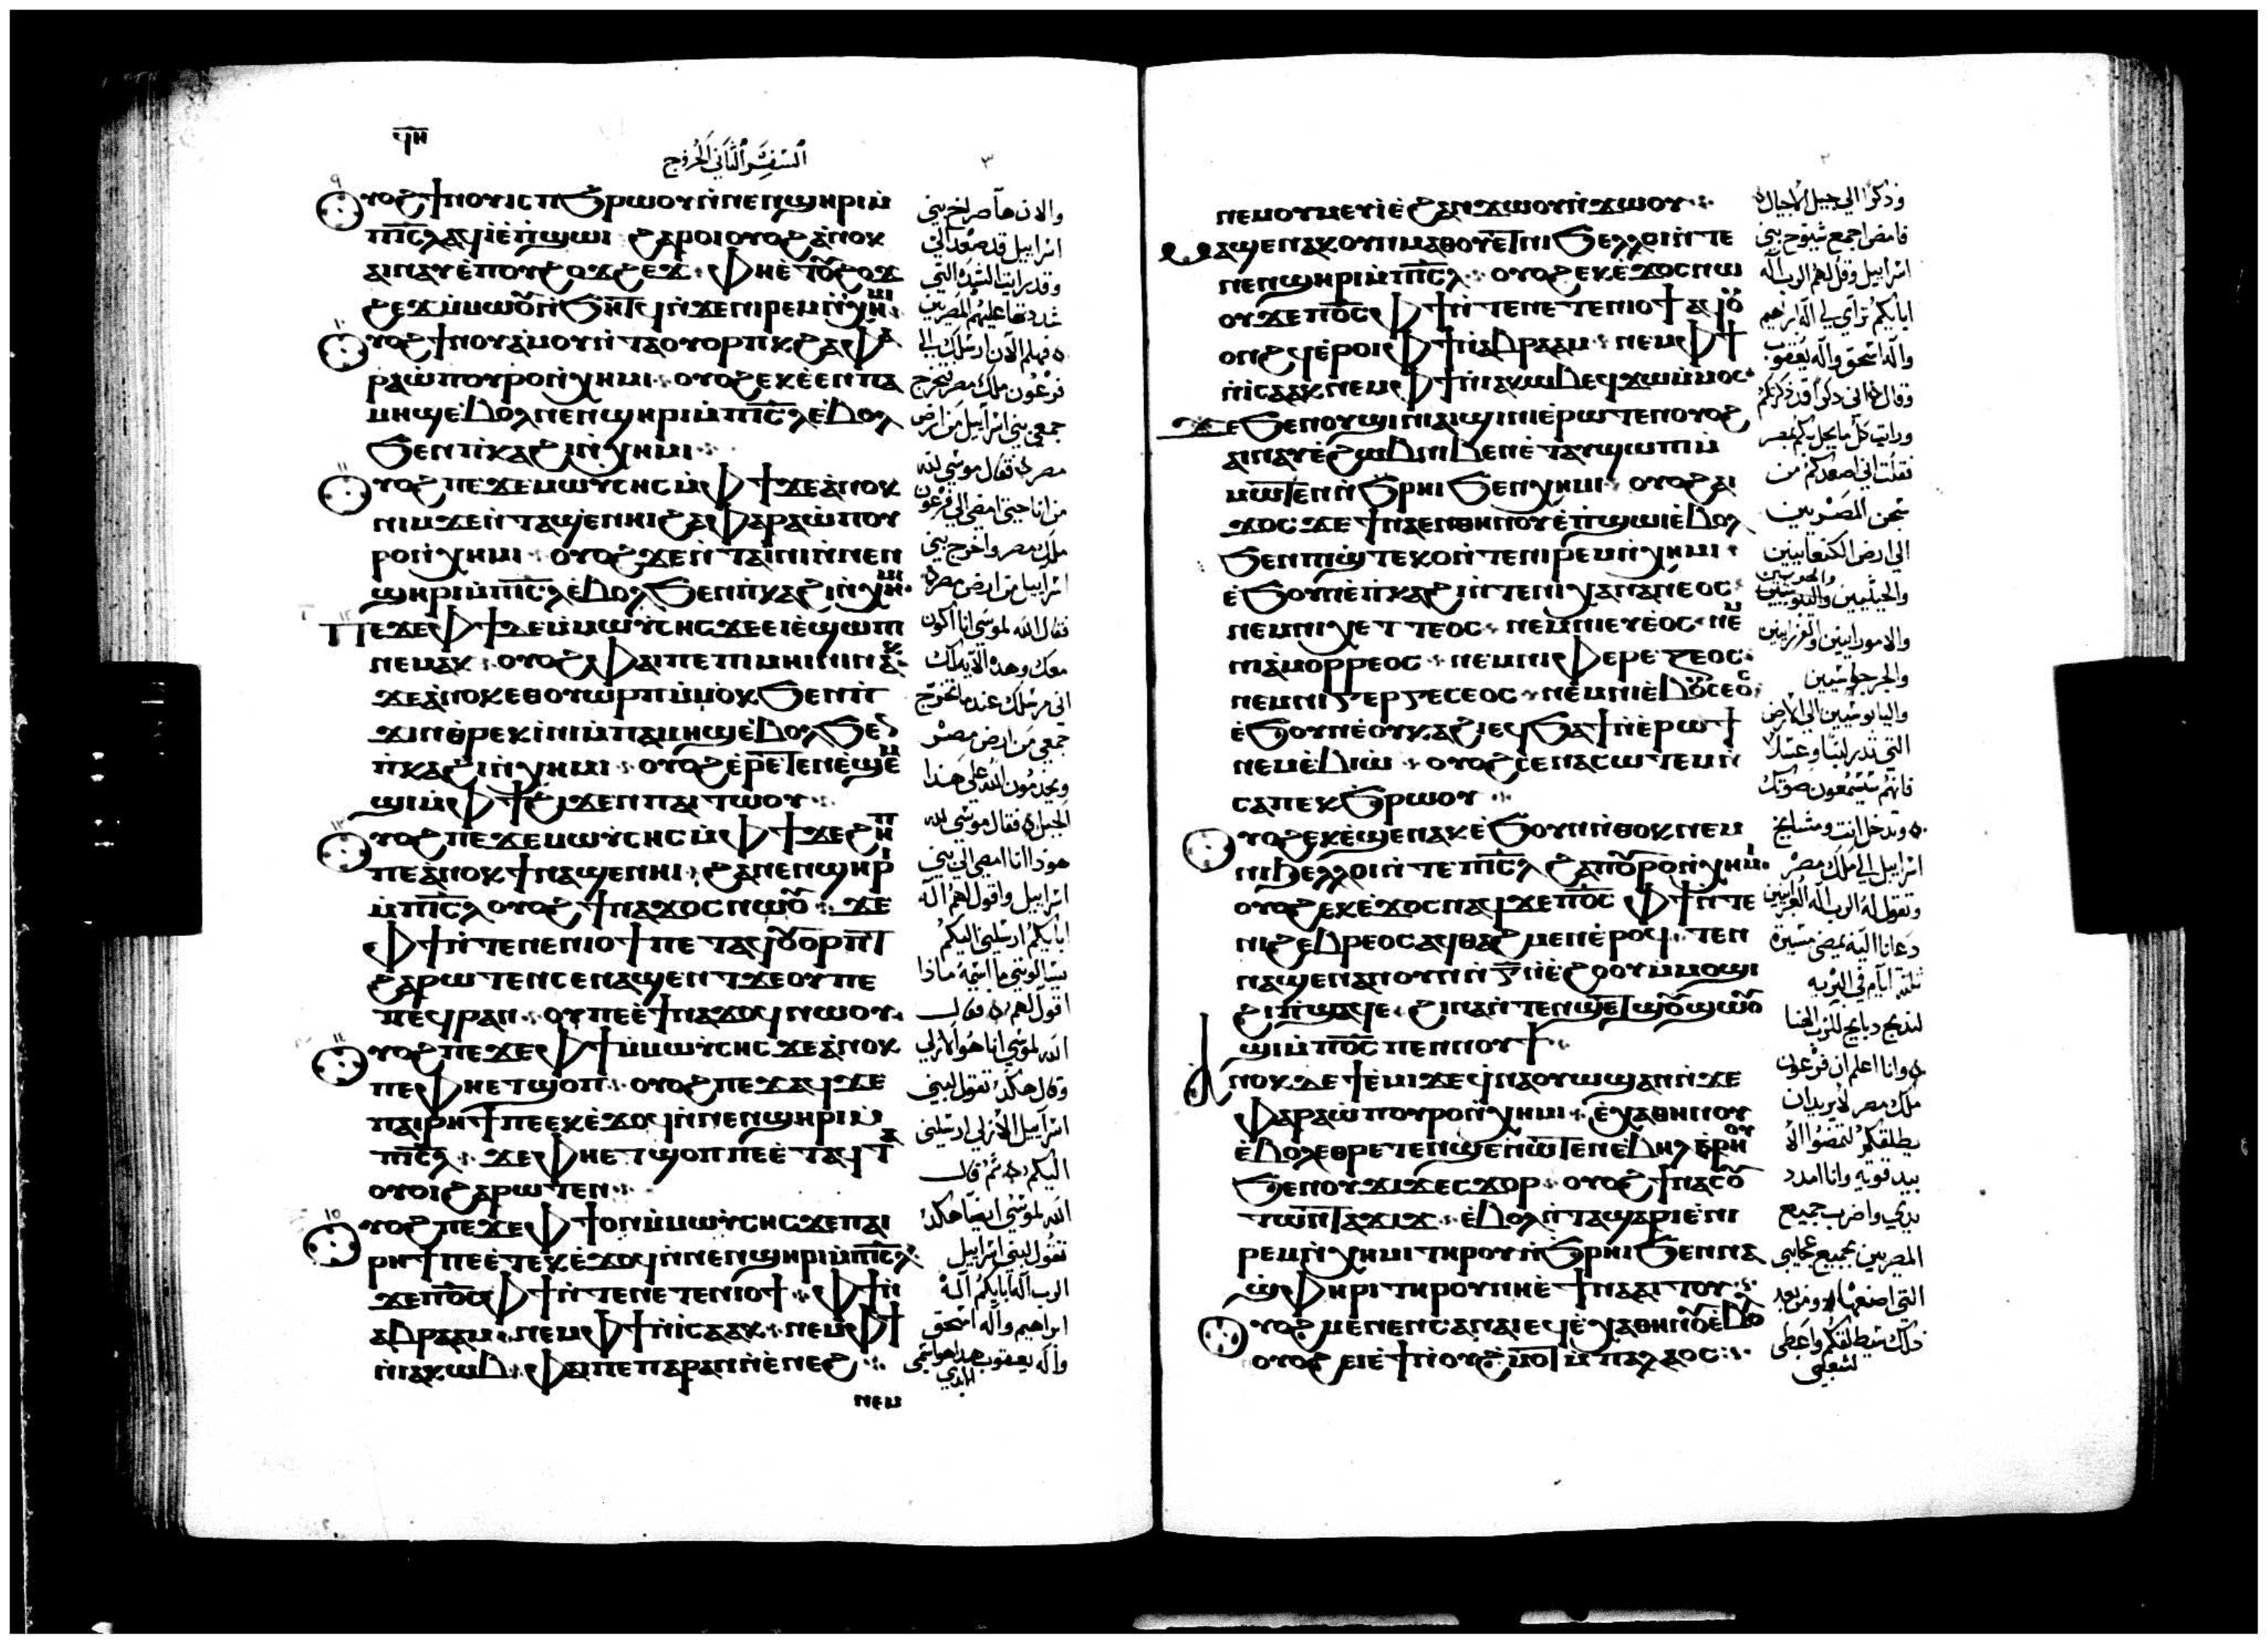 ϥⲏ
السفر الثاني الخروج
٣
٩
ⲟⲩⲟϩ ϯⲛⲟⲩ ⲓⲥ ⲡϧⲣⲱⲟⲩ ⲛ̀ⲛⲉⲛϣⲏⲣⲓ ⲙ̀
ⲡⲓ̅ⲥ̅ⲗ ⲁϥⲓ̀ ⲉ̀ⲡ̀ϣⲱⲓ ϩⲁⲣⲟⲓ ⲟⲩⲟϩ ⲁ̀ⲛⲟⲕ
ⲁⲓⲛⲁⲩ ⲉ̀ⲡⲟⲩϩⲟϫϩⲉϫ ⁘ ⲫⲏⲉ̀ⲧⲟⲩϩⲟϫ
ϩⲉϫ ⲙ̀ⲙⲱⲟⲩ ⲛ̀ϧⲏⲧϥ ⲛ̀ϫⲉⲛⲓⲣⲉⲙⲛ̀ⲭⲏⲙⲓ ⁘
١٠
ⲟⲩⲟϩ ϯⲛⲟⲩ ⲁ̀ⲙⲟⲩ ⲛ̀ⲧⲁⲟⲩⲟⲣⲡⲕ ϩⲁ ⲫⲁ
ⲣⲁⲱ̀ ⲡⲟⲩⲣⲟ ⲛ̀ⲭⲏⲙⲓ ⁘ ⲟⲩⲟϩ ⲉⲕⲉ̀ⲉⲛ ⲡⲁ
ⲙⲏϣ ⲉ̀ⲃⲟⲗ ⲛⲉⲛϣⲏⲣⲓ ⲙ̀ⲡⲓ̅ⲥ̅ⲗ ⲉ̀ⲃⲟⲗ
ϧⲉⲛ ⲡ̀ⲕⲁϩⲓ ⲛ̀ⲭⲏⲙⲓ ⁘
١١
ⲟⲩⲟϩ ⲡⲉϫⲉ ⲙⲱⲩ̀ⲥⲏⲥ ⲙ̀ⲫϯ ϫⲉ ⲁ̀ⲛⲟⲕ
ⲛⲓⲙ ϫⲉ ⲛ̀ⲧⲁϣⲉⲛⲏⲓ ϩⲁ ⲫⲁⲣⲁⲱ̀ ⲡⲟⲩ
ⲣⲟ ⲛ̀ⲭⲏⲙⲓ ⁘ ⲟⲩⲟϩ ϫⲉ ⲛ̀ⲧⲁⲓ̀ⲛⲓ ⲛ̀ⲛⲉⲛ
ϣⲏⲣⲓ ⲙ̀ⲡⲓ̅ⲥ̅ⲗ ⲉ̀ⲃⲟⲗ ϧⲉⲛ ⲡ̀ⲕⲁϩⲓ ⲛ̀ⲭⲏⲙⲓ ⁘
١٢
ⲡⲉϫⲉ ⲫϯ ⲇⲉ ⲙ̀ⲙⲱⲩ̀ⲥⲏⲥ ϫⲉ ⲉⲓⲉ̀ϣⲱⲡⲓ
ⲛⲉⲙⲁⲕ ⁘ ⲟⲩⲟϩ ⲫⲁⲓ ⲡⲉ ⲡⲓⲙⲏⲓⲛⲓ ⲛⲁⲕ ⁘
ϫⲉ ⲁ̀ⲛⲟⲕ ⲉⲑⲟⲩⲱⲣⲡ ⲙ̀ⲙⲟⲕ ϧⲉⲛ ⲡ̀
ϫⲓⲛⲑⲣⲉⲕⲓ̀ⲛⲓ ⲙ̀ⲡⲁⲙⲏϣ ⲉ̀ⲃⲟⲗ ϧⲉⲛ
ⲡ̀ⲕⲁϩⲓ ⲛ̀ⲭⲏⲙⲓ ⁘ ⲟⲩⲟϩ ⲉ̀ⲣⲉⲧⲉⲛⲉ̀ϣⲉⲙ
ϣⲓ ⲙ̀ⲫϯ ϩⲓϫⲉⲛ ⲡⲁⲓⲧⲱⲟⲩ ⁘
١٣
ⲟⲩⲟϩ ⲡⲉϫⲉ ⲙⲱⲩ̀ⲥⲏⲥ ⲙ̀ⲫϯ ϫⲉ ϩⲏⲡ
ⲡⲉ ⲁ̀ⲛⲟⲕ ϯⲛⲁϣⲉⲛⲏⲓ ⁘ ϩⲁ ⲛⲉⲛϣⲏⲣⲓ
ⲙ̀ⲡⲓ̅ⲥ̅ⲗ ⲟⲩⲟϩ ϯⲛⲁϫⲟⲥ ⲛⲱⲟⲩ ⁘ ϫⲉ
ⲫϯ ⲛ̀ⲧⲉ ⲛⲉⲛⲓⲟϯ ⲡⲉⲧⲁϥⲟⲩⲟⲣⲡⲧ
ϩⲁⲣⲱⲧⲉⲛ ⲥⲉⲛⲁϣⲉⲛⲧ ϫⲉ ⲟⲩ ⲡⲉ
ⲡⲉϥⲣⲁⲛ ⁘ ⲟⲩ ⲡⲉ ⲉ̀ϯⲛⲁϫⲟϥ ⲛⲱⲟⲩ ⁘
١٤
ⲟⲩⲟϩ ⲡⲉϫⲉ ⲫϯ ⲙ̀ⲙⲱⲩ̀ⲥⲏⲥ ϫⲉ ⲁ̀ⲛⲟⲕ
ⲡⲉ ⲫⲏⲉⲧϣⲟⲡ ⁘ ⲟⲩⲟϩ ⲡⲉϫⲁϥ ϫⲉ
ⲡⲁⲓⲣⲏϯ ⲡⲉ ⲉⲕⲉ̀ϫⲟϥ ⲛ̀ⲛⲉⲛϣⲏⲣⲓ ⲙ̀
ⲡⲓ̅ⲥ̅ⲗ ⁘ ϫⲉ ⲫⲏⲉⲧϣⲟⲡ ⲡⲉ ⲉ̀ⲧⲁϥⲧⲁ
ⲟⲩⲟⲓ ϩⲁⲣⲱⲧⲉⲛ ⁘
١٥
ⲟⲩⲟϩ ⲡⲉϫⲉ ⲫϯ ⲟⲛ ⲙ̀ⲙⲱⲩ̀ⲥⲏⲥ ϫⲉ ⲡⲁⲓ
ⲣⲏϯ ⲡⲉ ⲉ̀ⲧⲉⲕⲉ̀ϫⲟϥ ⲛ̀ⲛⲉⲛϣⲏⲣⲓ ⲙ̀ⲡⲓ̅ⲥ̅ⲗ
ϫⲉ ⲡ̅ⲟ̅ⲥ̅ ⲫϯ ⲛ̀ⲧⲉ ⲛⲉⲧⲉⲛⲓⲟϯ ⁘ ⲫϯ ⲛ̀
ⲁⲃⲣⲁⲁⲙ ⁘ ⲛⲉⲙ ⲫϯ ⲛ̀ⲓⲥⲁⲁⲕ ⁘ ⲛⲉⲙ ⲫϯ
ⲛ̀ⲓⲁⲕⲱⲃ ⁘ ⲫⲁⲓ ⲡⲉ ⲡⲁⲣⲁⲛ ⲛ̀ⲉ̀ⲛⲉϩ ⁘
ⲛⲉⲙ
والان ها صراخ بني
اسراييل قد صعد الي
وقد رايت الشدة التي
شددتها عليهم المصريين
فهلم الان ارسلك الي
فرعون ملك مصر فتخرج
جمعي بني اسراييل من ارض
مصر فقال موسي لله
من انا حتي امضي الي فرعون
ملك مصر واخرج بني
اسراييل من ارض مصر
فقال الله لموسي انا اكون
معك وهذه الاية لك
اني مرسلك عندما تخرج
جمعي من ارض مصر
ويخدمون الله علي هذا
الجبل فقال موسي لله
هوذا انا امضي الي بني
اسراييل واقول لهم اله
ابايكم ارسلني اليكم
يسالوني ما اسمه ماذا
اقول لهم فقال
الله لموسي انا هو الازلي
وقال هكذا تقول لبني
اسراييل الازلي ارسلني
اليكم ثم قال
الله لموسي ايضا هكذا
تقول لبني اسراييل
الرب اله ابايكم اله
ابراهيم واله اسحق
واله يعقوب هذا هو اسمي
الابدي
٢
ⲛⲉⲙ ⲟⲩⲙⲉⲩⲓ̀ ⲉ̀ϩⲁⲛϫⲱⲟⲩ ⲛ̀ϫⲱⲟⲩ ⁘
ⲙⲁϣⲉⲛⲁⲕ ⲟⲩⲛ ⲙⲁⲑⲟⲩⲉⲧ ⲛⲓϧⲉⲗⲗⲟⲓ ⲛ̀ⲧⲉ
ⲛⲉⲛϣⲏⲣⲓ ⲙ̀ⲡⲓ̅ⲥ̅ⲗ ⁘ ⲟⲩⲟϩ ⲉⲕⲉ̀ϫⲟⲥ ⲛⲱ
ⲟⲩ ϫⲉ ⲡ̅ⲟ̅ⲥ̅ ⲫϯ ⲛ̀ⲧⲉ ⲛⲉⲧⲉⲛⲓⲟϯ ⲁϥⲟⲩ
ⲟⲛϩϥ ⲉ̀ⲣⲟⲓ ⲫϯ ⲛ̀ⲁⲃⲣⲁⲁⲙ ⁘ ⲛⲉⲙ ⲫϯ
ⲛ̀ⲓⲥⲁⲁⲕ ⲛⲉⲙ ⲫϯ ⲛ̀ⲓⲁⲕⲱⲃ ⲉϥϫⲱ ⲙ̀ⲙⲟⲥ
ϫⲉ ϧⲉⲛ ⲟⲩϣⲓⲛⲓ ⲁⲓϣⲓⲛⲓ ⲉ̀ⲣⲱⲧⲉⲛ ⲟⲩⲟϩ
ⲁⲓⲛⲁⲩ ⲉ̀ϩⲱⲃ ⲛⲓⲃⲉⲛ ⲉ̀ⲧⲁⲩϣⲱⲡⲓ ⲙ̀
ⲙⲱⲧⲉⲛ ⲛ̀ϧⲣⲏⲓ ϧⲉⲛ ⲭⲏⲙⲓ ⁘ ⲟⲩⲟϩ ⲁⲓ
ϫⲟⲥ ϫⲉ ϯⲛⲁⲉⲛⲑⲏⲛⲟⲩ ⲉ̀ⲡ̀ϣⲱⲓ ⲉ̀ⲃⲟⲗ
ϧⲉⲛ ⲡϣ̀ⲧⲉⲕⲟ ⲛ̀ⲧⲉ ⲛⲓⲣⲉⲙⲛ̀ⲭⲏⲙⲓ ⁘
ⲉ̀ϧⲟⲩⲛ ⲉ̀ⲡ̀ⲕⲁϩⲓ ⲛ̀ⲧⲉ ⲛⲓⲭⲁⲛⲁⲛⲉⲟⲥ ⁘
ⲛⲉⲙ ⲛⲓⲭⲉⲧⲧⲉⲟⲥ ⁘ ⲛⲉⲙ ⲛⲓⲉⲩⲉ̀ⲟⲥ ⁘ ⲛⲉⲙ
ⲛⲓⲁ̀ⲙⲟⲣⲣⲉⲟⲥ ⁘ ⲛⲉⲙ ⲛⲓⲫⲉⲣⲉⲍⲉⲟⲥ ⁘
ⲛⲉⲙ ⲛⲓⲅⲉⲣⲅⲉⲥⲉⲟⲥ ⁘ ⲛⲉⲙ ⲛⲓⲉ̀ⲃⲟⲩⲥⲉⲟⲥ ⁘
ⲉ̀ϧⲟⲩⲛ ⲉ̀ⲟⲩⲕⲁϩⲓ ⲉϥϧⲁϯ ⲛ̀ⲉⲣⲱϯ
ⲛⲉⲙ ⲉ̀ⲃⲓⲱ̀ ⁘ ⲟⲩⲟϩ ⲥⲉⲛⲁⲥⲱⲧⲉⲙ ⲛ̀
ⲥⲁ ⲡⲉⲕϧⲣⲱⲟⲩ ⁘
ⲟⲩⲟϩ ⲉⲕⲉ̀ϣⲉⲛⲁⲕ ⲉ̀ϧⲟⲩⲛ ⲛ̀ⲑⲟⲕ ⲛⲉⲙ
ⲛⲓϧⲉⲗⲗⲟⲓ ⲛ̀ⲧⲉ ⲡⲓ̅ⲥ̅ⲗ ϩⲁ ⲡⲟⲩⲣⲟ ⲛ̀ⲭⲏⲙⲓ ⁘
ⲟⲩⲟϩ ⲉⲕⲉ̀ϫⲟⲥ ⲛⲁϥ ϫⲉ ⲡ̅ⲟ̅ⲥ̅ ⲫϯ ⲛ̀ⲧⲉ
ⲛⲓϩⲉⲃⲣⲉⲟⲥ ⲁϥⲑⲁϩⲙⲉⲛ ⲉ̀ⲣⲟϥ ⁘ ⲧⲉⲛ
ⲛⲁϣⲉⲛⲁⲛ ⲟⲩⲛ ⲛ̀ⲅ̅ ⲛ̀ⲉ̀ϩⲟⲟⲩ ⲙ̀ⲙⲟϣⲓ
ϩⲓ ⲡ̀ϣⲁϥⲉ ⁘ ϩⲓⲛⲁ ⲛ̀ⲧⲉⲛϣⲉⲧ ϣⲟⲩϣⲱⲟⲩ
ϣⲓ ⲙ̀ⲡ̅ⲟ̅ⲥ̅ ⲡⲉⲛⲛⲟⲩϯ ⁘
ⲁⲛⲟⲕ ⲇⲉ ϯⲉ̀ⲙⲓ ϫⲉ ϥⲛⲁⲟⲩⲱϣ ⲁⲛ ⲛ̀ϫⲉ
ⲫⲁⲣⲁⲱ̀ ⲡⲟⲩⲣⲟ ⲛ̀ⲭⲏⲙⲓ ⁘ ⲉ̀ⲭⲁⲑⲏⲛⲟⲩ
ⲉ̀ⲃⲟⲗ ⲉⲑⲣⲉⲧⲉⲛϣⲉⲛⲱⲧⲉⲛ ⲉ̀ⲃⲏⲗ ⲉ̀ⲣⲏⲟⲩ
ϧⲉⲛ ⲟⲩϫⲓϫ ⲉⲥϫⲟⲣ ⁘ ⲟⲩⲟϩ ϯⲛⲁⲥⲟⲩ
ⲧⲱⲛ ⲧⲁϫⲓϫ ⁘ ⲉ̀ⲃⲟⲗ ⲛ̀ⲧⲁϣⲁⲣⲓ ⲉ̀ⲛⲓ
ⲣⲉⲙⲛ̀ⲭⲏⲙⲓ ⲧⲏⲣⲟⲩ ⲛ̀ϧⲣⲏⲓ ϧⲉⲛ ⲛⲁ
ϣ̀ⲫⲏⲣⲓ ⲧⲏⲣⲟⲩ ⲛⲏⲉ̀ϯⲛⲁⲁⲓⲧⲟⲩ ⁘
ⲟⲩⲟϩ ⲙⲉⲛⲉⲛⲥⲁ ⲛⲁⲓ ⲉϥⲉ̀ⲭⲁⲑⲏⲛⲟⲩ ⲉ̀ⲃⲟⲗ
ⲟⲩⲟϩ ⲉⲓⲉ̀ϯ ⲛ̀ⲟⲩϩ̀ⲙⲟⲧ ⲙ̀ⲡⲁⲗⲁⲟⲥ ⁘
وذكرا الي جيل الاجيال
فامض اجمع شيوخ بني
اسراييل وقل لهم الرب اله
ابايكم تراي لي اله ابراهيم
واله اسحق واله يعقوب
وقال اني ذكرا قد ذكرتكم
ورايت كل ما يحل بكم بمصر
فقلت اني اصعدكم من
سجن المصريين
الي ارض الكنعانيين
والحيثيين
والامورانيين والفرزانيين
والجرجواشيين
واليابوسيين الي الارض
التي تدر لبنا وعسلا
فانهم سيسمعون صوتك
وتدخل انت ومشايخ
اسراييل الي ملك مصر
وتقول له الرب اله العبرانيين
دعانا اليه نمضي مسيرة
ثلثة ايام في البرية
لنذبح دبايح للرب الهنا
وانا اعلم ان فرعون
ملك مصر لا يريد ان
يطلقكم لتمضوا الا
بيد قوية وانا امدد
يدي واضرب جميع
المصريين بجميع عجايبي
التي اصنعها ومن بعد
ذلك سيطلقكم واعطي
لشعبي